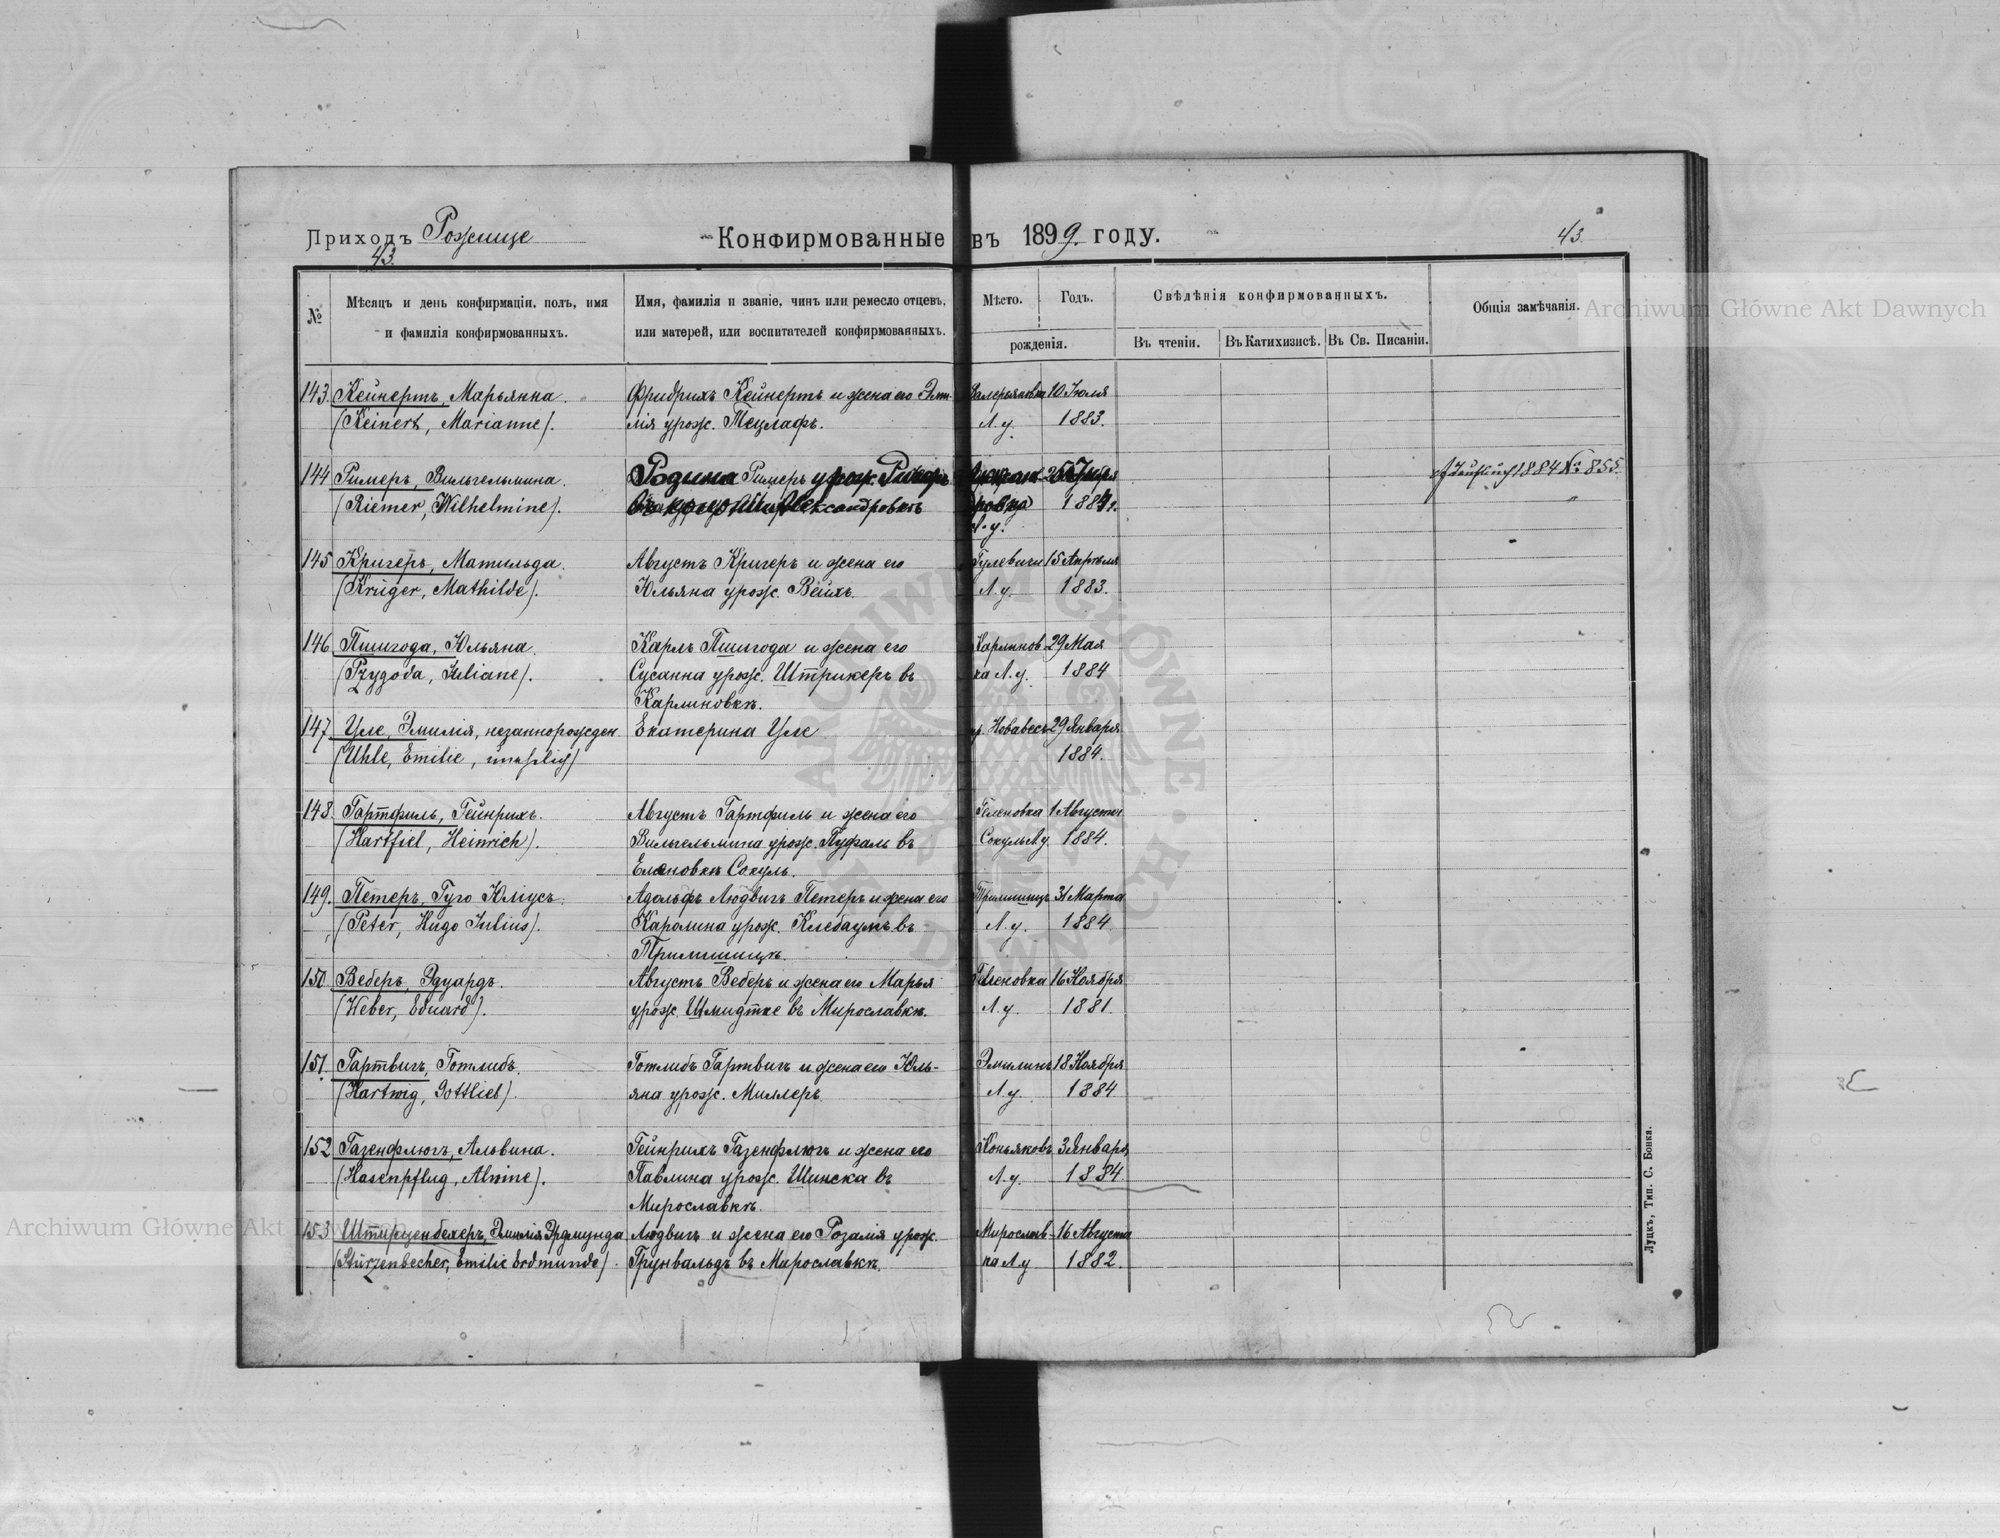 Приходъ Рожище
Конфирмованные въ 1899. году.
43.
43.
№
Мѣсяцъ и день конфирмаціи, полъ, имя
и фамилія конфирмованныхъ.
Имя, фамилія и званіе, чинъ или ремесло отцевъ,
или матерей, или воспитателей конфирмованныхъ.
Мѣсто.
Годъ.
рожденія.
Свѣдѣнія конфирмованныхъ.
Въ чтеніи.
Въ Катихизисѣ.
Въ Св. Писаніи.
Общія замѣчанія.
143. Кейнертъ, Марьянна. Фридрихъ Кейнертъ и жена его Эми- Валерьяновка 10 Іюля
(Keinert, Marianne). лія урож. Тецлафъ. Л.у. 1883.
144 Римеръ, Вильгельмина. Родина Римеръ урож. 1884 № 855.
(Riemer, Wilhelmine). Александровкѣ 1884.
Л.у.
145 Кригеръ, Матильда. Августъ Кригеръ и жена его Гулевичи 15 Апрѣля
(Krüger, Mathilde). Юльяна урож. Вейхъ. Л.у. 1883.
146 Пшигода, Юльяна. Карлъ Пшигода и жена его Карлинов 29 Мая
(Pzygoda, Juliane). Сусанна урож. Штрикеръ въ ка Л.у. 1884
Карлиновкѣ.
147 Уле, Эмилія, незаконорожден Екатерина Уле Новавесь 29 Января
(Uhle, Emilie, unehelich) 1884.
148. Гартфиль, Гейнрихъ. Августъ Гартфиль и жена его Геленовка 1 Августа
(Hartfiel, Heinrich). Вильгельмина урож. Пуфаль въ Сокуль Л.у. 1884.
Еленовкѣ Сокуль.
149. Петеръ, Гуго Юліусъ. Адольфъ Людвигъ Петеръ и жена его 31 Марта
(Peter, Hugo Julius). Каролина урож. Клебаумъ въ Л.у. 1884
150 Веберъ, Эдуардъ. Августъ Веберъ и жена его Марья Геленовка 16 Ноября
(Weber, Eduard). урож. Шмидтке въ Мирославкѣ. Л.у. 1881.
151. Гартвигъ, Готлибъ. Готлибъ Гартвигъ и жена его Юль- Эмилинъ 18 Ноября
(Hartwig, Gottlieb). яна урож. Миллеръ Л.у. 1884
152 Газенфлюгъ, Альвина. Гейнрихъ Газенфлюгъ и жена его Коньяковъ 3 Января
(Hasenpflug, Alwine). Павлина урож. Шинска въ Л.у. 1884
Мирославкѣ.
153 Штирценбехеръ, Эмилія Эрдмунда Людвигъ и жена его Розалія урож. Мирослав- 16 Августа
(Stürzenbecher, Emilie Erdmunde) Грунвальдъ въ Мирославкѣ. ка Л.у 1882.
Луцкъ, Тип. С. Бонка.
Archiwum Główne Akt Dawnych
Archiwum Główne Akt Dawnych
ARCHIWUM GŁÓWNE AKT DAWNYCH